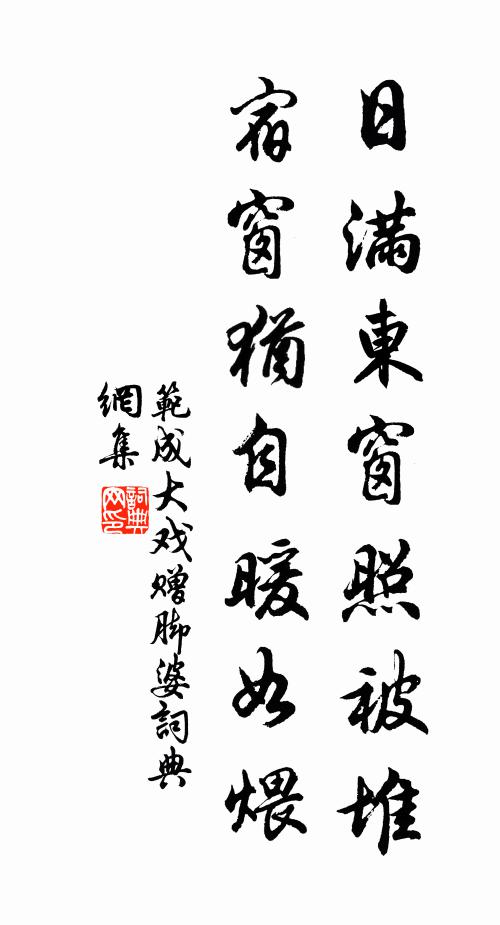 日滿東窗照被堆
宿窗猶自暖如煨
範成大戏赠脚婆詞典
網集
詞典网印